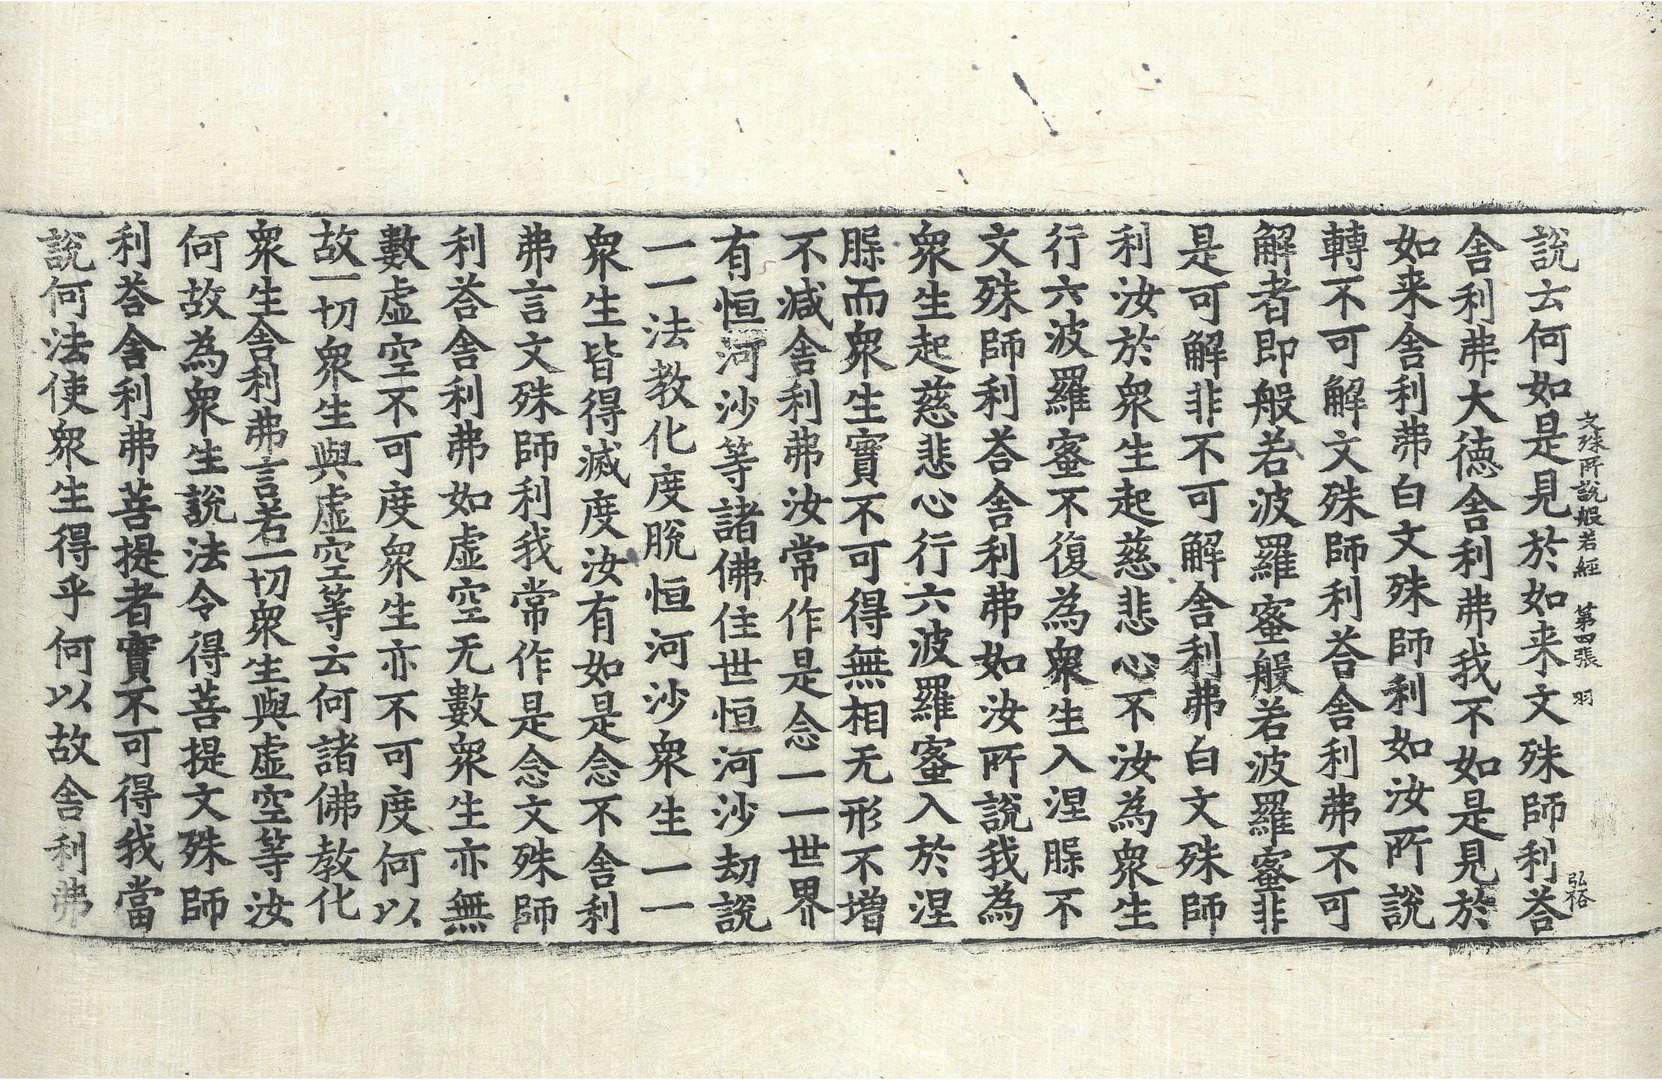 文殊所說般若經 第四張 羽 弘裕
說云何如是見於如来文殊師利荅
舎利弗大徳舎利弗我不如是見於
如来舎利弗白文殊師利如汝所說
轉不可解文殊師利荅舎利弗不可
解者即般若波羅蜜般若波羅蜜非
是可解非不可解舎利弗白文殊師
利汝於衆生起慈悲心不汝為衆生
行六波羅蜜不復為衆生入涅槃不
文殊師利荅舎利弗如汝所說我為
衆生起慈悲心行六波羅蜜入於涅
槃而衆生實不可得無相无形不增
不減舎利弗汝常作是念一一世界
有恒河沙等諸佛住世恒河沙劫說
一一法教化度脫恒河沙衆生一一
衆生皆得滅度汝有如是念不舎利
弗言文殊師利我常作是念文殊師
利荅舎利弗如虚空无數衆生亦無
數虚空不可度衆生亦不可度何以
故一切衆生與虚空等云何諸佛教化
衆生舎利弗言若一切衆生與虚空等汝
何故為衆生說法令得菩提文殊師
利荅舎利弗菩提者實不可得我當
說何法使衆生得乎何以故舎利弗